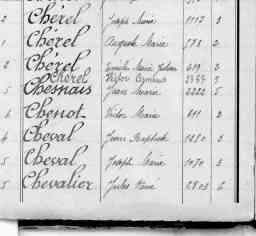 Chérel Joseph Marie 1113 3
1 Chérel Auguste Marie 578 2
2 Chérel Marie 619 3
Chérel Victor
5 Chesnais Jean Marie 2222 5
6 Chenot Victor Marie 611 2
4 Cheval Jean Baptiste 1250 3
5 Cheval Joseph Marie 1030 3
5 Chevalier Jules René 2803 6